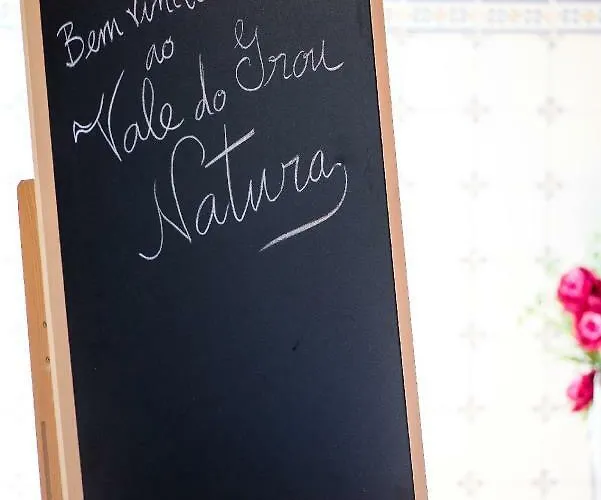 Bem Vindo
ao
Vale do Grou
Natura